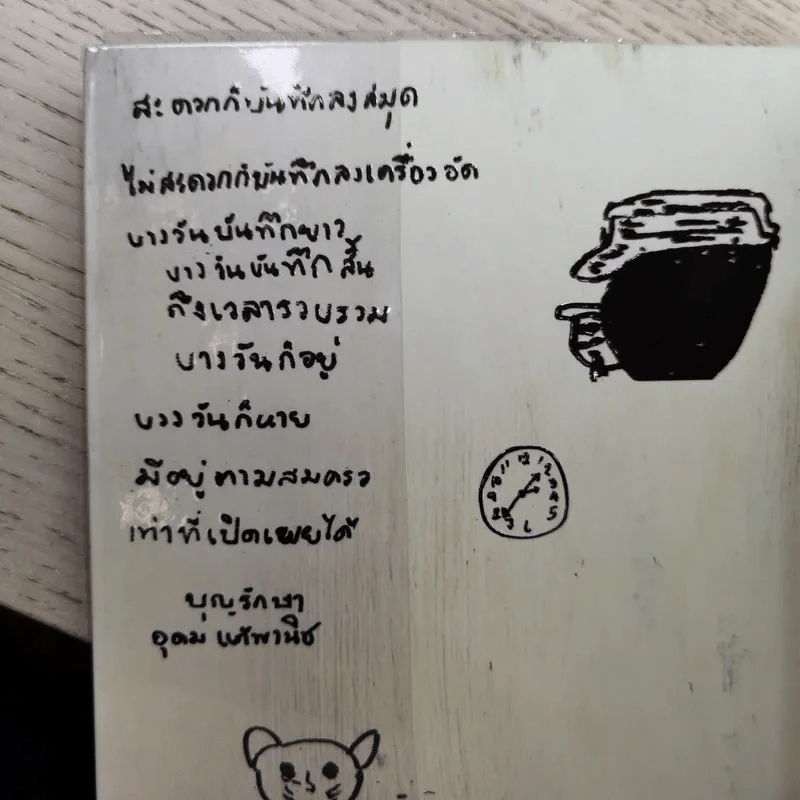 สะดวกก็บันทึกลงสมุด
ไม่สะดวกก็บันทึกลงเครื่องอัด
บางวันบันทึกยาว
บางวันบันทึกสั้น
ถึงเวลารวบรวม
บางวันก็อยู่
บางวันก็หาย
มีอยู่ตามสมควร
เท่าที่เปิดเผยได้
บุญรักษา
อุดม แต้พานิช